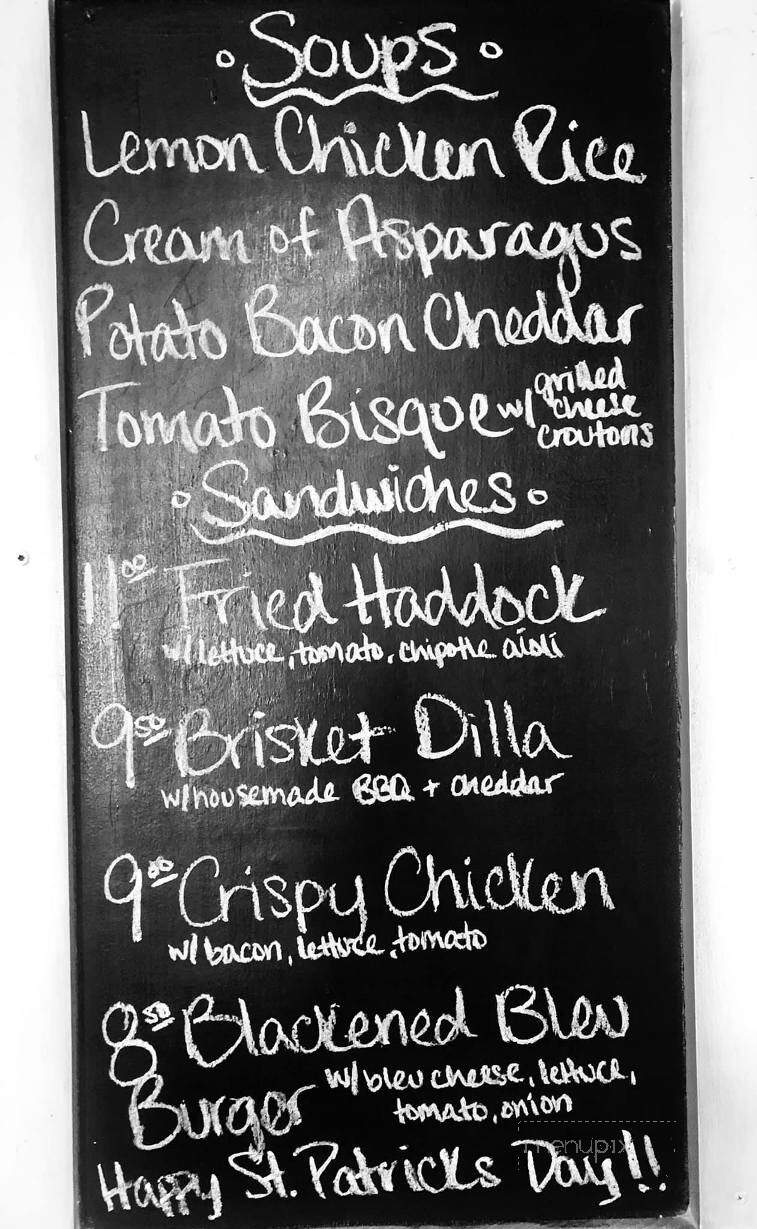 Soups
Lemon Chicken Rice
Cream of Asparagus
Potato Bacon Cheddar
Tomato Bisque w/ grilled
cheese
croutons
Sandwiches
11.00 Fried Haddock
w/lettuce, tomato, chipotle aioli
9.50 Brisket Dilla
w/housemade BBQ + cheddar
9.00 Crispy Chicken
w/ bacon, lettuce, tomato
8.50 Blackened Bleu
Burger w/bleu cheese, lettuce,
tomato, onion
Happy St. Patricks Day!!
menupix